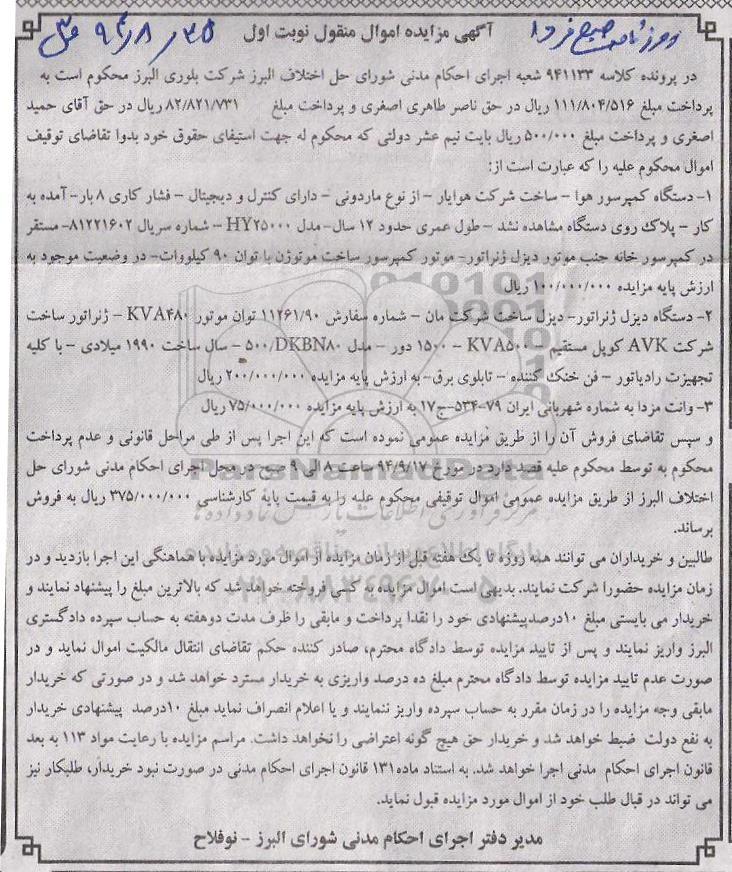 روزنامه صبح فردا
آگهی مزایده اموال منقول نوبت اول
در پرونده کلاسه ۹۴۱۱۳۳ شعبه اجرای احکام مدنی شورای حل اختلاف البرز شرکت بلوری البرز محکوم است به
پرداخت مبلغ ۱۱۱/۸۰۴/۵۱۶ ریال در حق ناصر طاهری اصغری و پرداخت مبلغ ۸۲/۸۲۱/۷۳۱ ریال در حق آقای حمید
اصغری و پرداخت مبلغ ۵۰۰/۰۰۰ ریال بابت نیم عشر دولتی که محکوم له جهت استیفای حقوق خود بدوا تقاضای توقیف
اموال محکوم علیه را که عبارت است از:
۱- دستگاه کمپرسور هوا – ساخت شرکت هوایار – از نوع ماردونی – دارای کنترل و دیجیتال – فشار کاری ۸ بار- آمده به
کار – پلاک روی دستگاه مشاهده نشد – طول عمری حدود ۱۲ سال– مدل HY۲۵۰۰۰ – شماره سریال ۸۱۲۲۱۶۰۲- مستقر
در کمپرسور خانه جنب موتور دیزل ژنراتور- موتور کمپرسور ساخت موتوژن با توان ۹۰ کیلووات- در وضعیت موجود به
ارزش پایه مزایده ۱۰۰/۰۰۰/۰۰۰ ریال
۲- دستگاه دیزل ژنراتور- دیزل ساخت شرکت مان – شماره سفارش ۱۱۲۶۱/۹۰ توان موتور KVA۴۸۰ – ژنراتور ساخت
شرکت AVK کوپل مستقیم – KVA۵۰۰ – ۱۵۰۰ دور – مدل ۵۰۰/DKBN۸۰ – سال ساخت ۱۹۹۰ میلادی – با کلیه
تجهیزت رادیاتور – فن خنک کننده – تابلوی برق- به ارزش پایه مزایده ۲۰۰/۰۰۰/۰۰۰ ریال
۳- وانت مزدا به شماره شهربانی ایران ۷۹-۵۳۴ج۱۷ به ارزش پایه مزایده ۷۵/۰۰۰/۰۰۰ ریال
و سپس تقاضای فروش آن را از طریق مزایده عمومی نموده است که این اجرا پس از طی مراحل قانونی و عدم پرداخت
محکوم به توسط محکوم علیه قصد دارد در مورخ ۹۴/۹/۱۷ ساعت ۸ الی ۹ صبح در محل اجرای احکام مدنی شورای حل
اختلاف البرز از طریق مزایده عمومی اموال توقیفی محکوم علیه را به قیمت پایه کارشناسی ۳۷۵/۰۰۰/۰۰۰ ریال به فروش
برساند.
طالبین و خریداران می توانند همه روزه تا یک هفته قبل از زمان مزایده از اموال مورد مزایده با هماهنگی این اجرا بازدید و در
زمان مزایده حضورا شرکت نمایند. بدیهی است اموال مزایده به کسی فروخته خواهد شد که بالاترین مبلغ را پیشنهاد نمایند و
خریدار می بایستی مبلغ ۱۰درصدپیشنهادی خود را نقدا پرداخت و مابقی را ظرف مدت دوهفته به حساب سپرده دادگستری
البرز واریز نمایند و پس از تایید مزایده توسط دادگاه محترم، صادر کننده حکم تقاضای انتقال مالکیت اموال نماید و در
صورت عدم تایید مزایده توسط دادگاه محترم مبلغ ده درصد واریزی به خریدار مسترد خواهد شد و در صورتی که خریدار
مابقی وجه مزایده را در زمان مقرر به حساب سپرده واریز ننمایند و یا اعلام انصراف نماید مبلغ ۱۰درصد پیشنهادی خریدار
به نفع دولت ضبط خواهد شد و خریدار حق هیچ گونه اعتراضی را نخواهد داشت. مراسم مزایده با رعایت مواد ۱۱۳ به بعد
قانون اجرای احکام مدنی اجرا خواهد شد. به استناد ماده۱۳۱ قانون اجرای احکام مدنی در صورت نبود خریدار، طلبکار نیز
می تواند در قبال طلب خود از اموال مورد مزایده قبول نماید.
مدیر دفتر اجرای احکام مدنی شورای البرز – نوفلاح
ParsNamadData